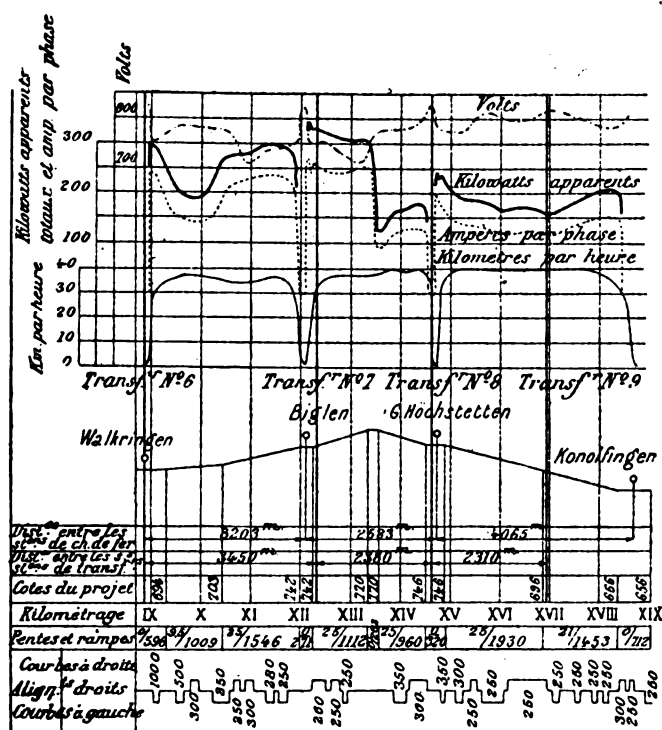 Kilowatts apparents
totaux et amp. par phase
Volts
800
700
300
200
100
Volts
Kilowatts apparents
Ampères par phase
Kilomètres par heure
Km. par heure
40
30
20
10
0
Transf.r Nº6 Transf.r Nº7 Transf.r Nº8 Transf.r Nº9
Walkringen
Biglen
G. Höchstetten
Konolfingen
Dist.ces entre les st.ons de ch. de fer 3203 m. 2583 m. 4065
Dist. entre les s.s st.ons de transf.rs 3450 m. 2380 m. 2310 m.
Cotes du projet 694 703 742 742 770 770 746 746 696 666 656
Kilométrage IX X XI XII XIII XIV XV XVI XVII XVIII XIX
Pentes et rampes 0/596 /1009 25/1546 25/1112 25/960 25/1930 21/1453 0/712
Courbes à droite
Align.ts droits
Courbes à gauche
1000 500 300 850 250 300 280 250 260 250 350 300 350 300 250 260 260 250 260 250 250 300 250 260